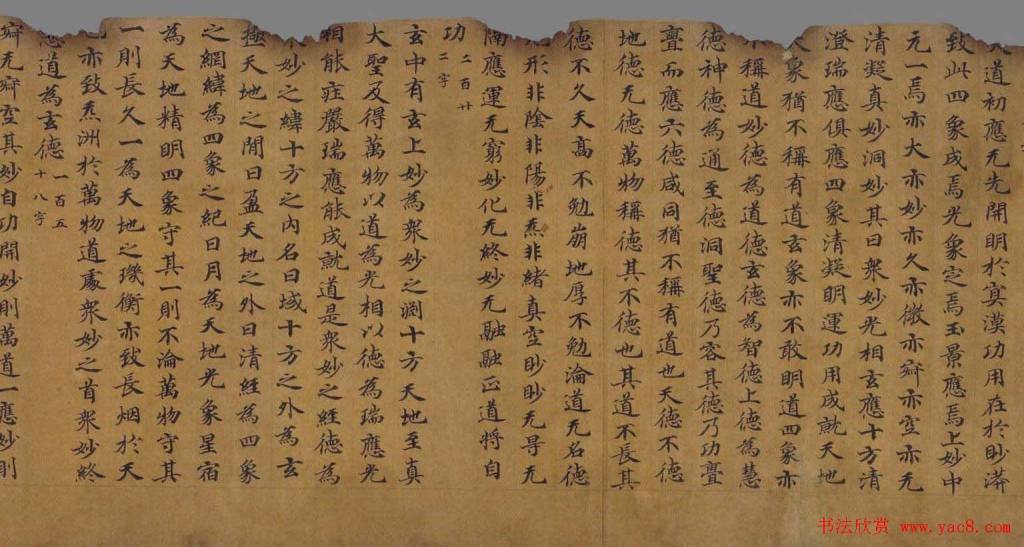 道初應无先開明於寘漠功用在於眇漭
致此四象成焉光象定焉玉景應焉上妙中
元一焉亦大亦妙亦久亦微亦辯亦空亦无
清凝真妙洞妙其曰衆妙光相玄應十方清
澄瑞應俱應四象清凝明運功用成就天地
象猶不稱有道玄象亦不敢明道四象亦
稱道妙德為道德玄德為智德上德為慧
德神德為通至德洞聖德乃容其德乃功亶
亶而應六德咸同猶不稱有道也天德不德
地德无德萬物稱德其不德也其道不長其
德不久天高不勉崩地厚不勉淪道无名德
形非陰非陽非炁非緒真空眇眇无㝵无
闇應運无窮妙化无終妙无融融正道將自
功 二百廿二字
玄中有玄上妙為衆妙之淵十方天地至真
大聖及得萬物以道為光相以德為瑞應光
相能莊嚴瑞應能成就道是衆妙之經德為
妙之緯十方之內名曰域十方之外為玄
極天地之間曰盈天地之外曰清經為四象
之網緯為四象之紀日月為天地光象星宿
為天地精明四象守其一則不淪萬物守其
一則長久一為天地之璣衡亦致長烟於天
亦致炁洲於萬物道處衆妙之首衆妙終
道為玄德 一百五十八字
辯无辯空其妙自功開妙則萬道一應妙則
书法欣赏 www.yac8.com